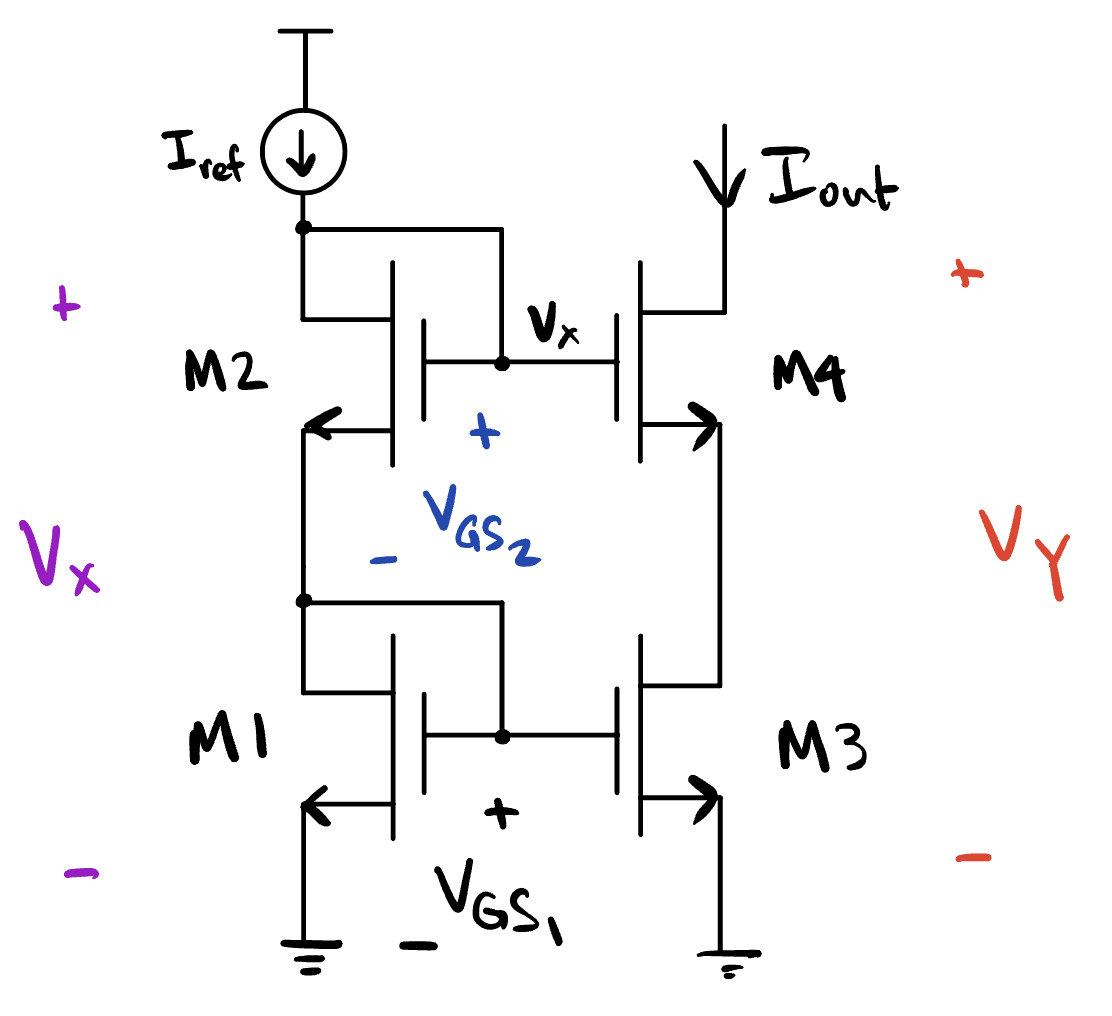 Iref
Iout
+
+
Vx
M2
M4
+
VGS2
-
Vx
VY
M1
M3
+
-
-
VGS1
-